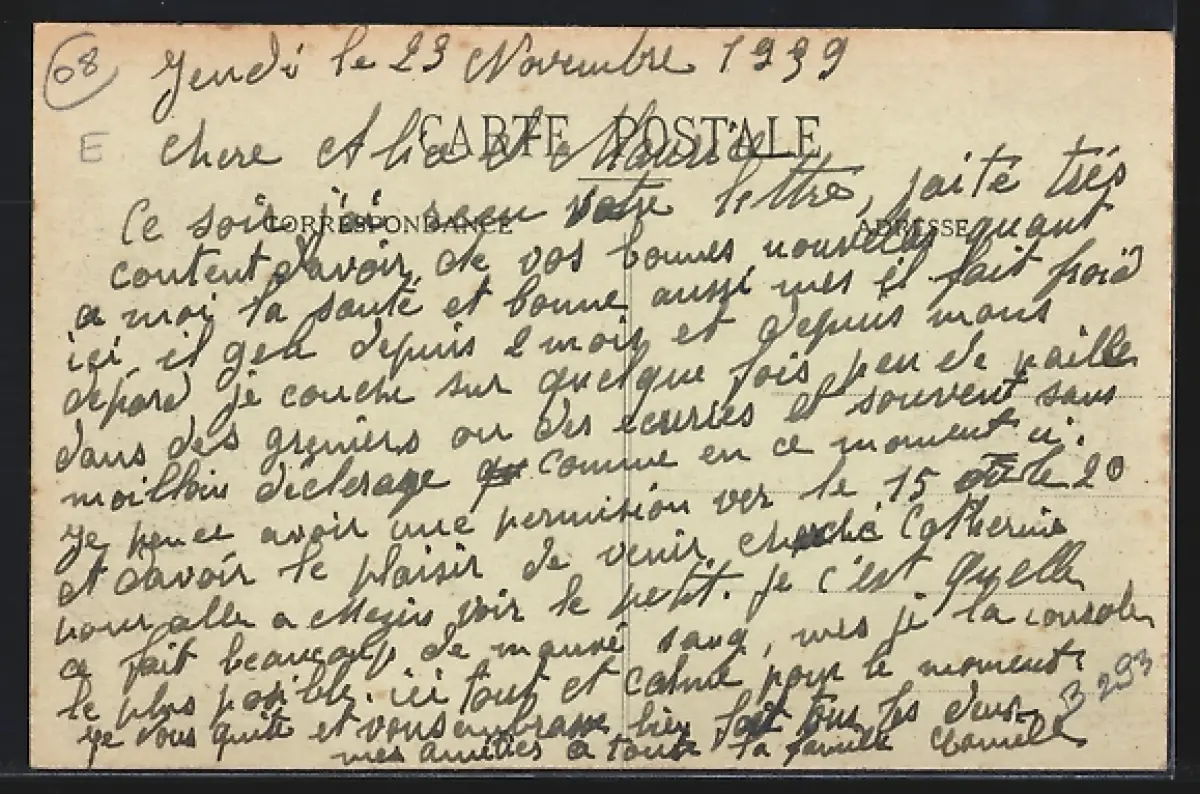 08
Jeudi le 23 Novembre 1939
E
CARTE POSTALE
Chere Alice et Maurice
CORRESPONDANCE
ADRESSE
Ce soir j'ai recu votre lettre, jai té trés
content davoir de vos bonnes nouvelles quant
a moi la santé et bonne aussi mes il fait froid
ici il gele depuis 2 mois et depuis mons
depard je couche sur quelque fois peu de paille
dans des greniers ou des ecuries et souvent sans
moillois déclerage comme en ce moment ici.
Je pence avoir une permision ver le 15 ou le 20
et davoir le plaisir de venir cherché Catherine
pour alle a voir le petit. je c'est quelle
ce fait beaucoup de mauvé sang, mes je la console
le plus posible. ici tout et calme pour le moment
je vous quitte et vous embrasse bien fort tous les deux
mes amitiés a toute la famille
B 293